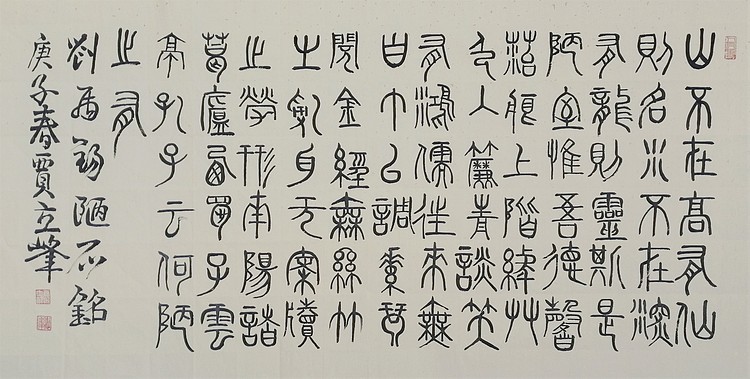 山不在高有仙
則名水不在深
有龍則靈斯是
陋室惟吾德馨
苔痕上階綠艸
色入簾青談笑
有鴻儒往來無
白丁以調素琴
閱金經無絲竹
之亂耳无案牘
之勞形南陽諸
葛廬西蜀子雲
亭孔子云何陋
之有
劉禹錫陋室銘
庚子春賈立峯